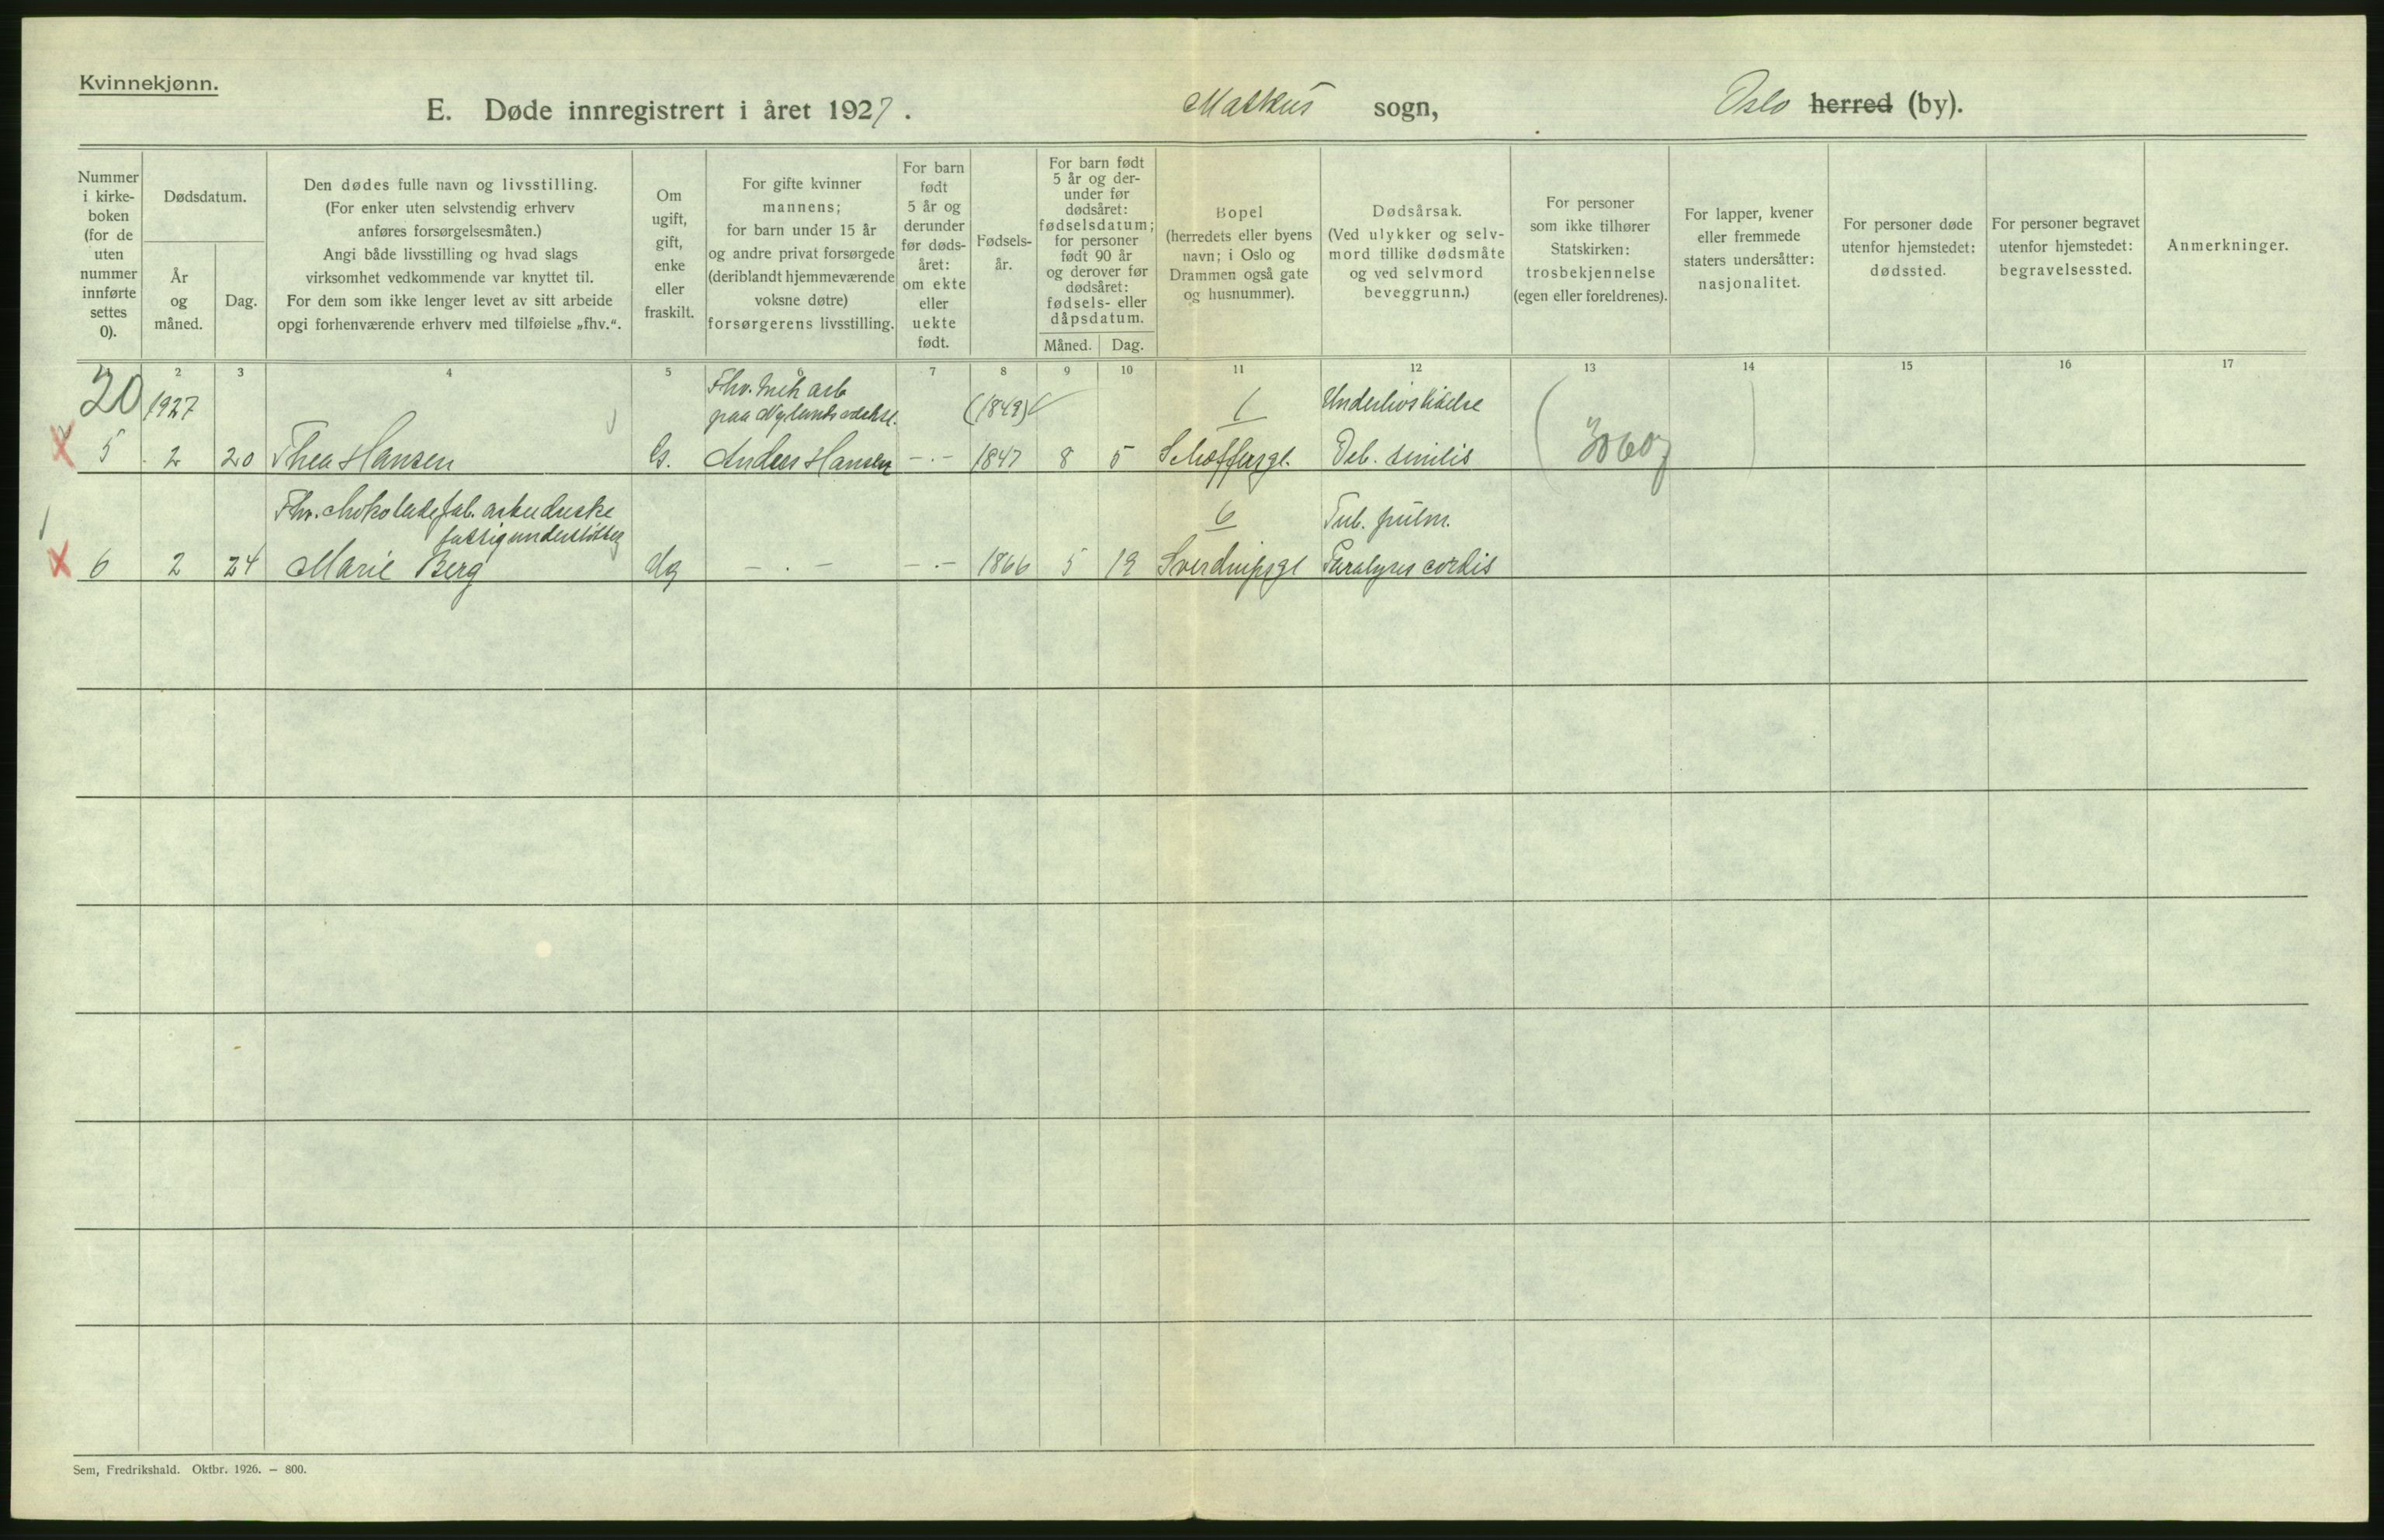 Kvinnekjønn.
E. Døde innregistrert i året 1927. Markus sogn, Oslo herred (by).
Nummer i kirkeboken (for de uten nummer innførte settes 0).
Dødsdatum.
År og måned.
Dag.
Den dødes fulle navn og livsstilling.
(For enker uten selvstendig erhverv
anføres forsørgelsesmåten.)
Angi både livsstilling og hvad slags
virksomhet vedkommende var knyttet til.
For dem som ikke lenger levet av sitt arbeide
opgi forhenværende erhverv med tilføielse „fhv.“.
Om
ugift,
gift,
enke
eller
fraskilt.
For gifte kvinner
mannens;
for barn under 15 år
og andre privat forsørgede
(deriblandt hjemmeværende
voksne døtre)
forsørgerens livsstilling.
For barn
født
5 år og
derunder
før døds-
året:
om ekte
eller
uekte
født.
Fødsels-
år.
For barn født
5 år og der-
under før
dødsåret:
fødselsdatum;
for personer
født 90 år
og derover før
dødsåret:
fødsels- eller
dåpsdatum.
Måned. Dag.
Bopel
(herredets eller byens
navn; i Oslo og
Drammen også gate
og husnummer).
Dødsårsak.
(Ved ulykker og selv-
mord tillike dødsmåte
og ved selvmord
beveggrunn.)
For personer
som ikke tilhører
Statskirken:
trosbekjennelse
(egen eller foreldrenes).
For lapper, kvener
eller fremmede
staters undersåtter:
nasjonalitet.
For personer døde
utenfor hjemstedet:
dødssted.
For personer begravet
utenfor hjemstedet:
begravelsessted.
Anmerkninger.
2 3 4 5 6 7 8 9 10 11 12 13 14 15 16 17
20 1927 Fhv. mek arb (1849) 1
paa Nylands
5 2 20 Thea Hansen G. Anders Hansen -.- 1847 8 5 Schæffersgt. Deb. senilis
Fhv. chokoladefab. arbeiderske 6 Tub. pulm.
fattigunderstøttet
6 2 24 Marie Berg ug - . - -.- 1866 5 19 Sverdrupsgt Paralysis cordis
Sem, Fredrikshald. Oktbr. 1926. – 800.